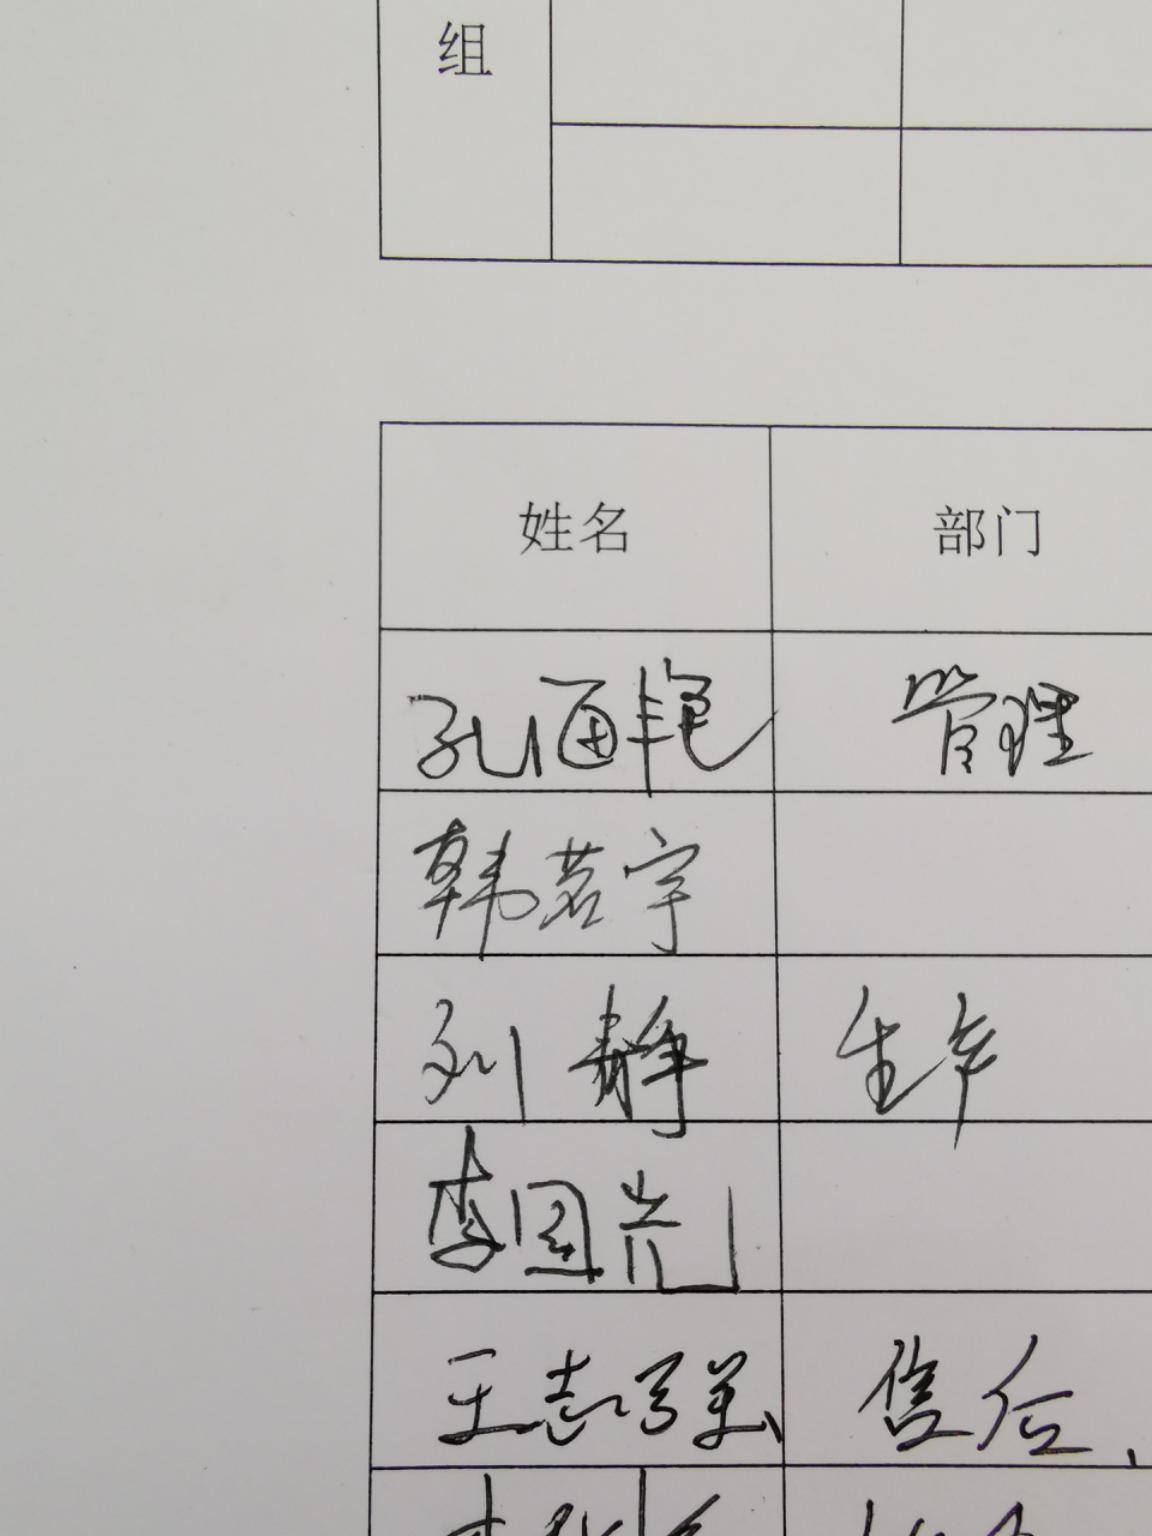 组
姓名 部门
孔通艳 管理
韩茗宇
刘静 生产
李国光
王志强 售后